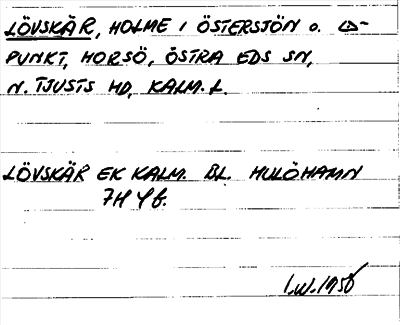 LÖVSKÄR, HOLME I ÖSTERSJÖN O. 
PUNKT, HORSÖ, ÖSTRA EDS SN,
N. TJUSTS HD, KALM. L.
LÖVSKÄR EK KALM. BL. HULÖHAMN
7H 4f.
I.W. 1956